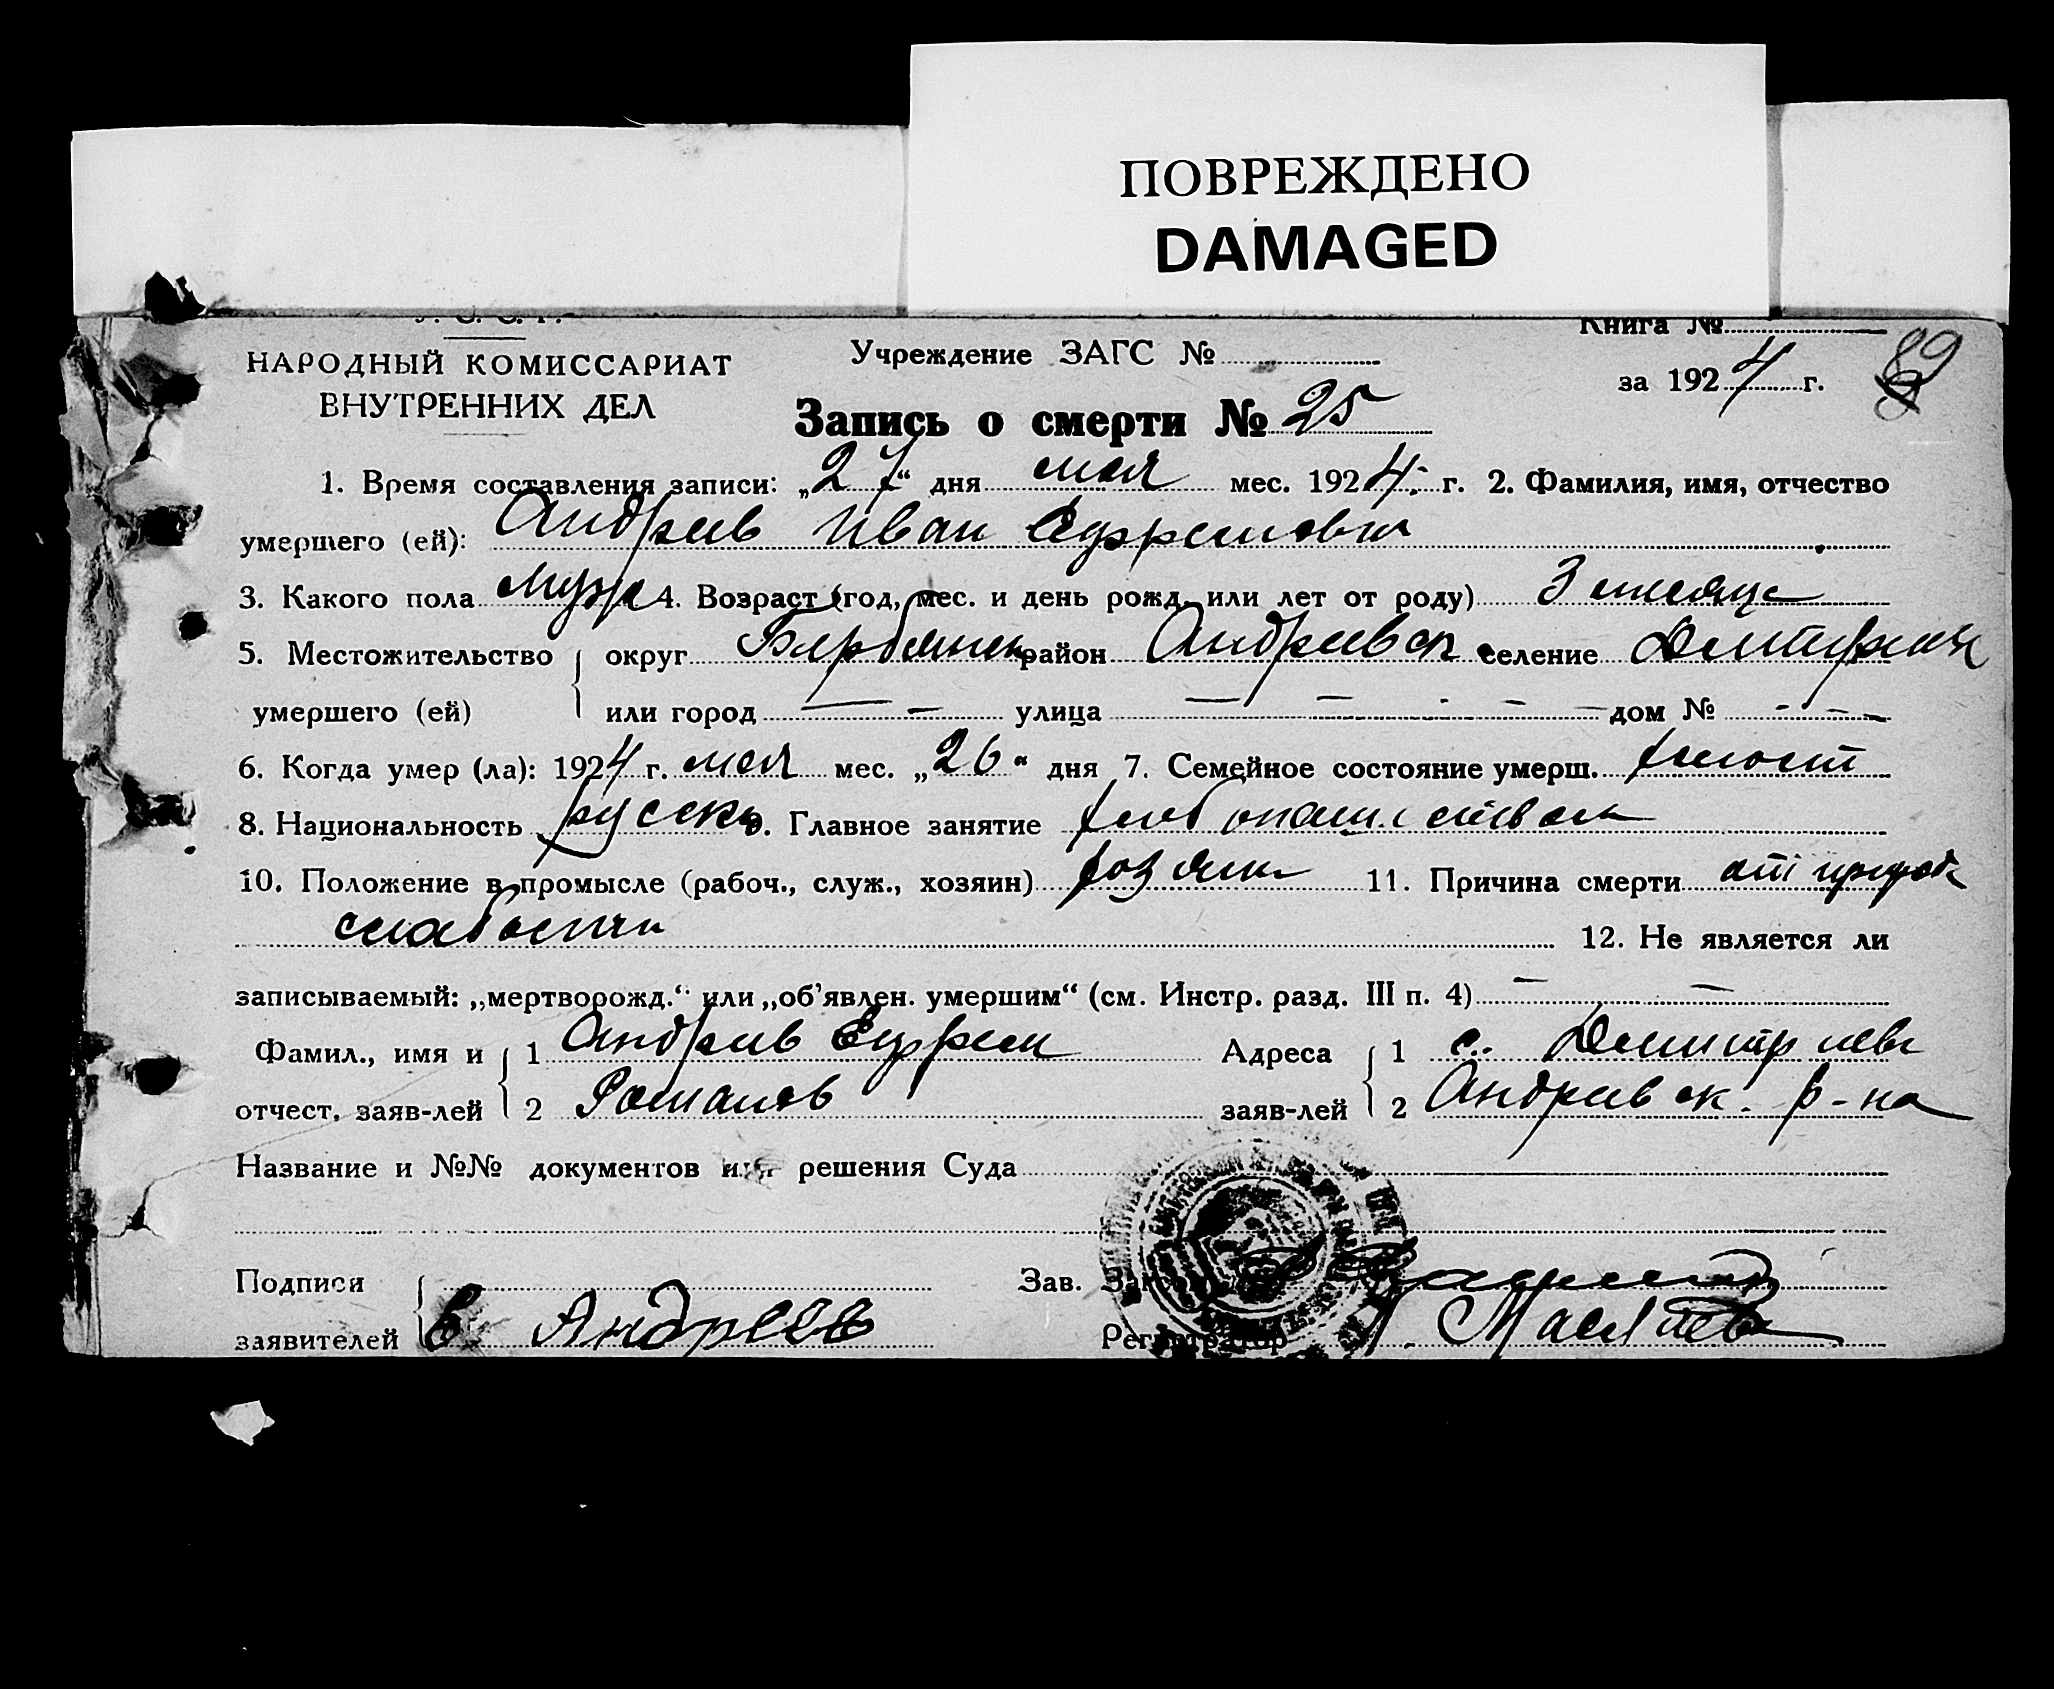 ПОВРЕЖДЕНО
DAMAGED
Книга №
НАРОДНЫЙ КОМИССАРИАТ
ВНУТРЕННИХ ДЕЛ
Учреждение ЗАГС №
за 1924 г. 89
Запись о смерти № 25
1. Время составления записи: „27“ дня мая мес. 1924 г. 2. Фамилия, имя, отчество
умершего (ей): Андреев Иван Ефремович
3. Какого пола муж 4. Возраст (год, мес. и день рожд. или лет от роду) 3 месяца
5. Местожительство округ Бердянск район Андреевск селение
умершего (ей) или город — — улица — — — — дом № - - -
6. Когда умер (ла): 1924 г. мая мес. „26“ дня 7. Семейное состояние умерш. холост
8. Национальность русск 9. Главное занятие хлебопашеством
10. Положение в промысле (рабоч., служ., хозяин) хозяин 11. Причина смерти от
слабости 12. Не является ли
записываемый: „мертворожд.“ или „об’явлен. умершим“ (см. Инстр. разд. III п. 4) — —
Фамил., имя и 1 Андреев Ефрем Адреса 1 с.
отчест. заяв-лей 2 Романов заяв-лей 2 Андреевск. р-на
Название и №№ документов или решения Суда
Подписи Зав. Загсом
заявителей Е Андреев Регистратор